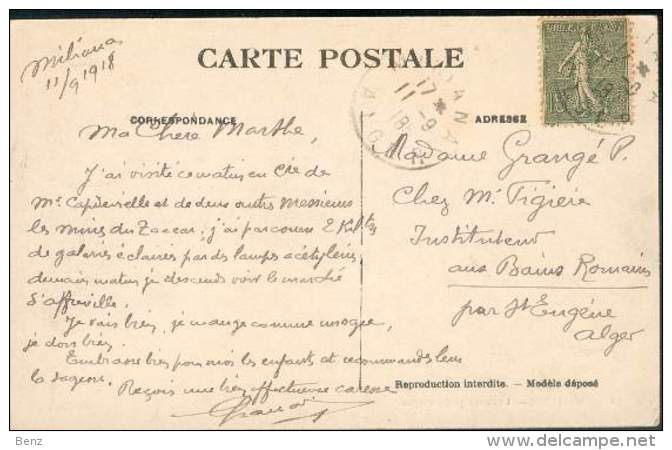 Miliana
11/9 1918
CARTE POSTALE
CORRESPONDANCE
ADRESSE
Ma Chère Marthe,
J'ai visité ce matin en Cie de
Mr Capdevielle et de deux autres Messieurs
les mines du Zaccar; j'ai parcouru 2 Kil.
de galeries éclairées par des lampes acétylène,
demain matin je descends voir le marché
d'affreville.
Je vais bien, je mange comme un ogre,
je dors bien.
Embrasse bien pour moi les enfants et recommande leur
la sagesse. Reçois une bien affectueuse caresse
Madame Grangé P.
Chez Mr Figière
Instituteur
aux Bains Romains
par St Eugène
Alger
Reproduction interdite. — Modèle déposé
Benz
http://www.delcampe.net